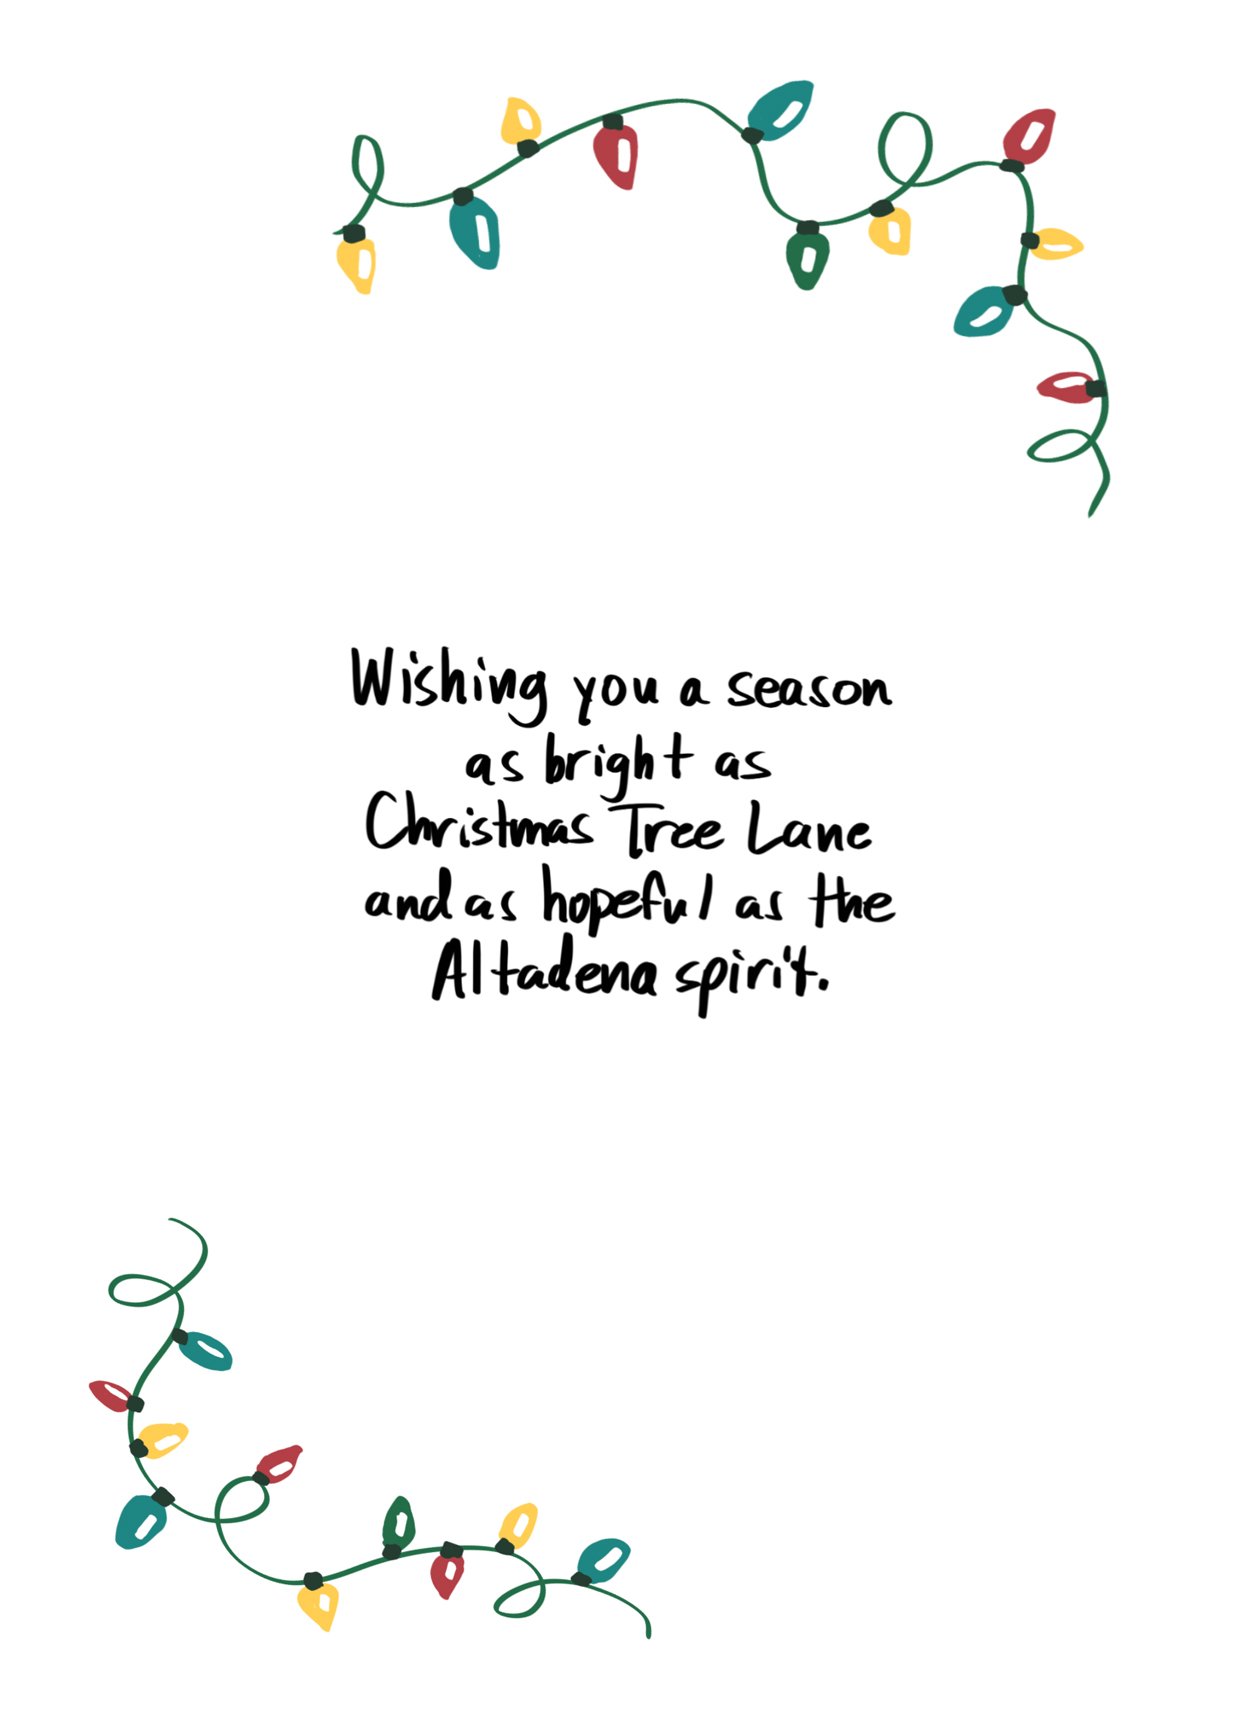 Wishing you a season
as bright as
Christmas Tree Lane
and as hopeful as the
Altadena spirit.